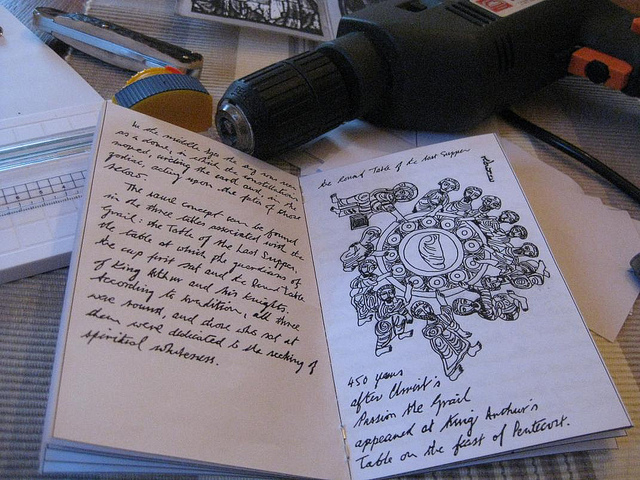 In the middle Ages the sky was seen
as a dome, in which the constellations
moved, circling the earth and in the
zodiac, acting upon the fate of those
below.
The same concept can be found
in the three tables associated with the
Grail: the Table of the Last Supper,
the table at which the guardians of
the cup first sat and the Round Table
of King Arthur and his Knights.
According to tradition, all three
were round, and those who sat at
them were dedicated to the seeking of
spiritual wholeness.
the Round Table of the Last Supper
450 years
after Christ's
Passion the Grail
appeared at King Arthur's
Table on the feast of Pentecost.